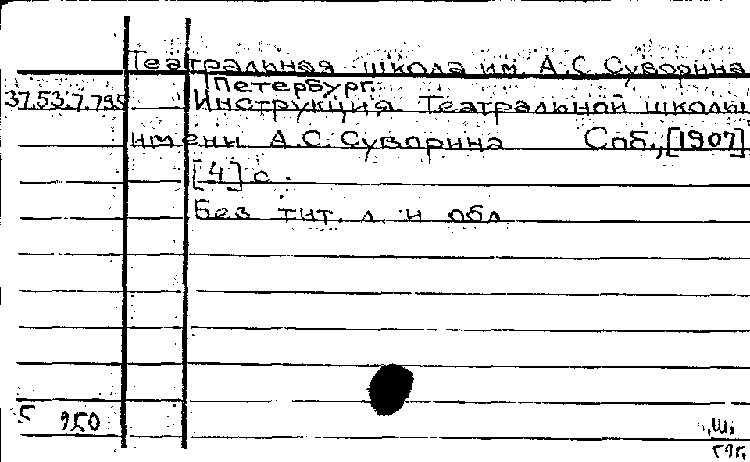 Театральная школа им. А.С. Суворина
Петербург.
37.53.7.799 Инструкция Театральной школы
имени А.С. Суворина Спб., [1907]
[4] с.
Без тит. л. и обл
5 950